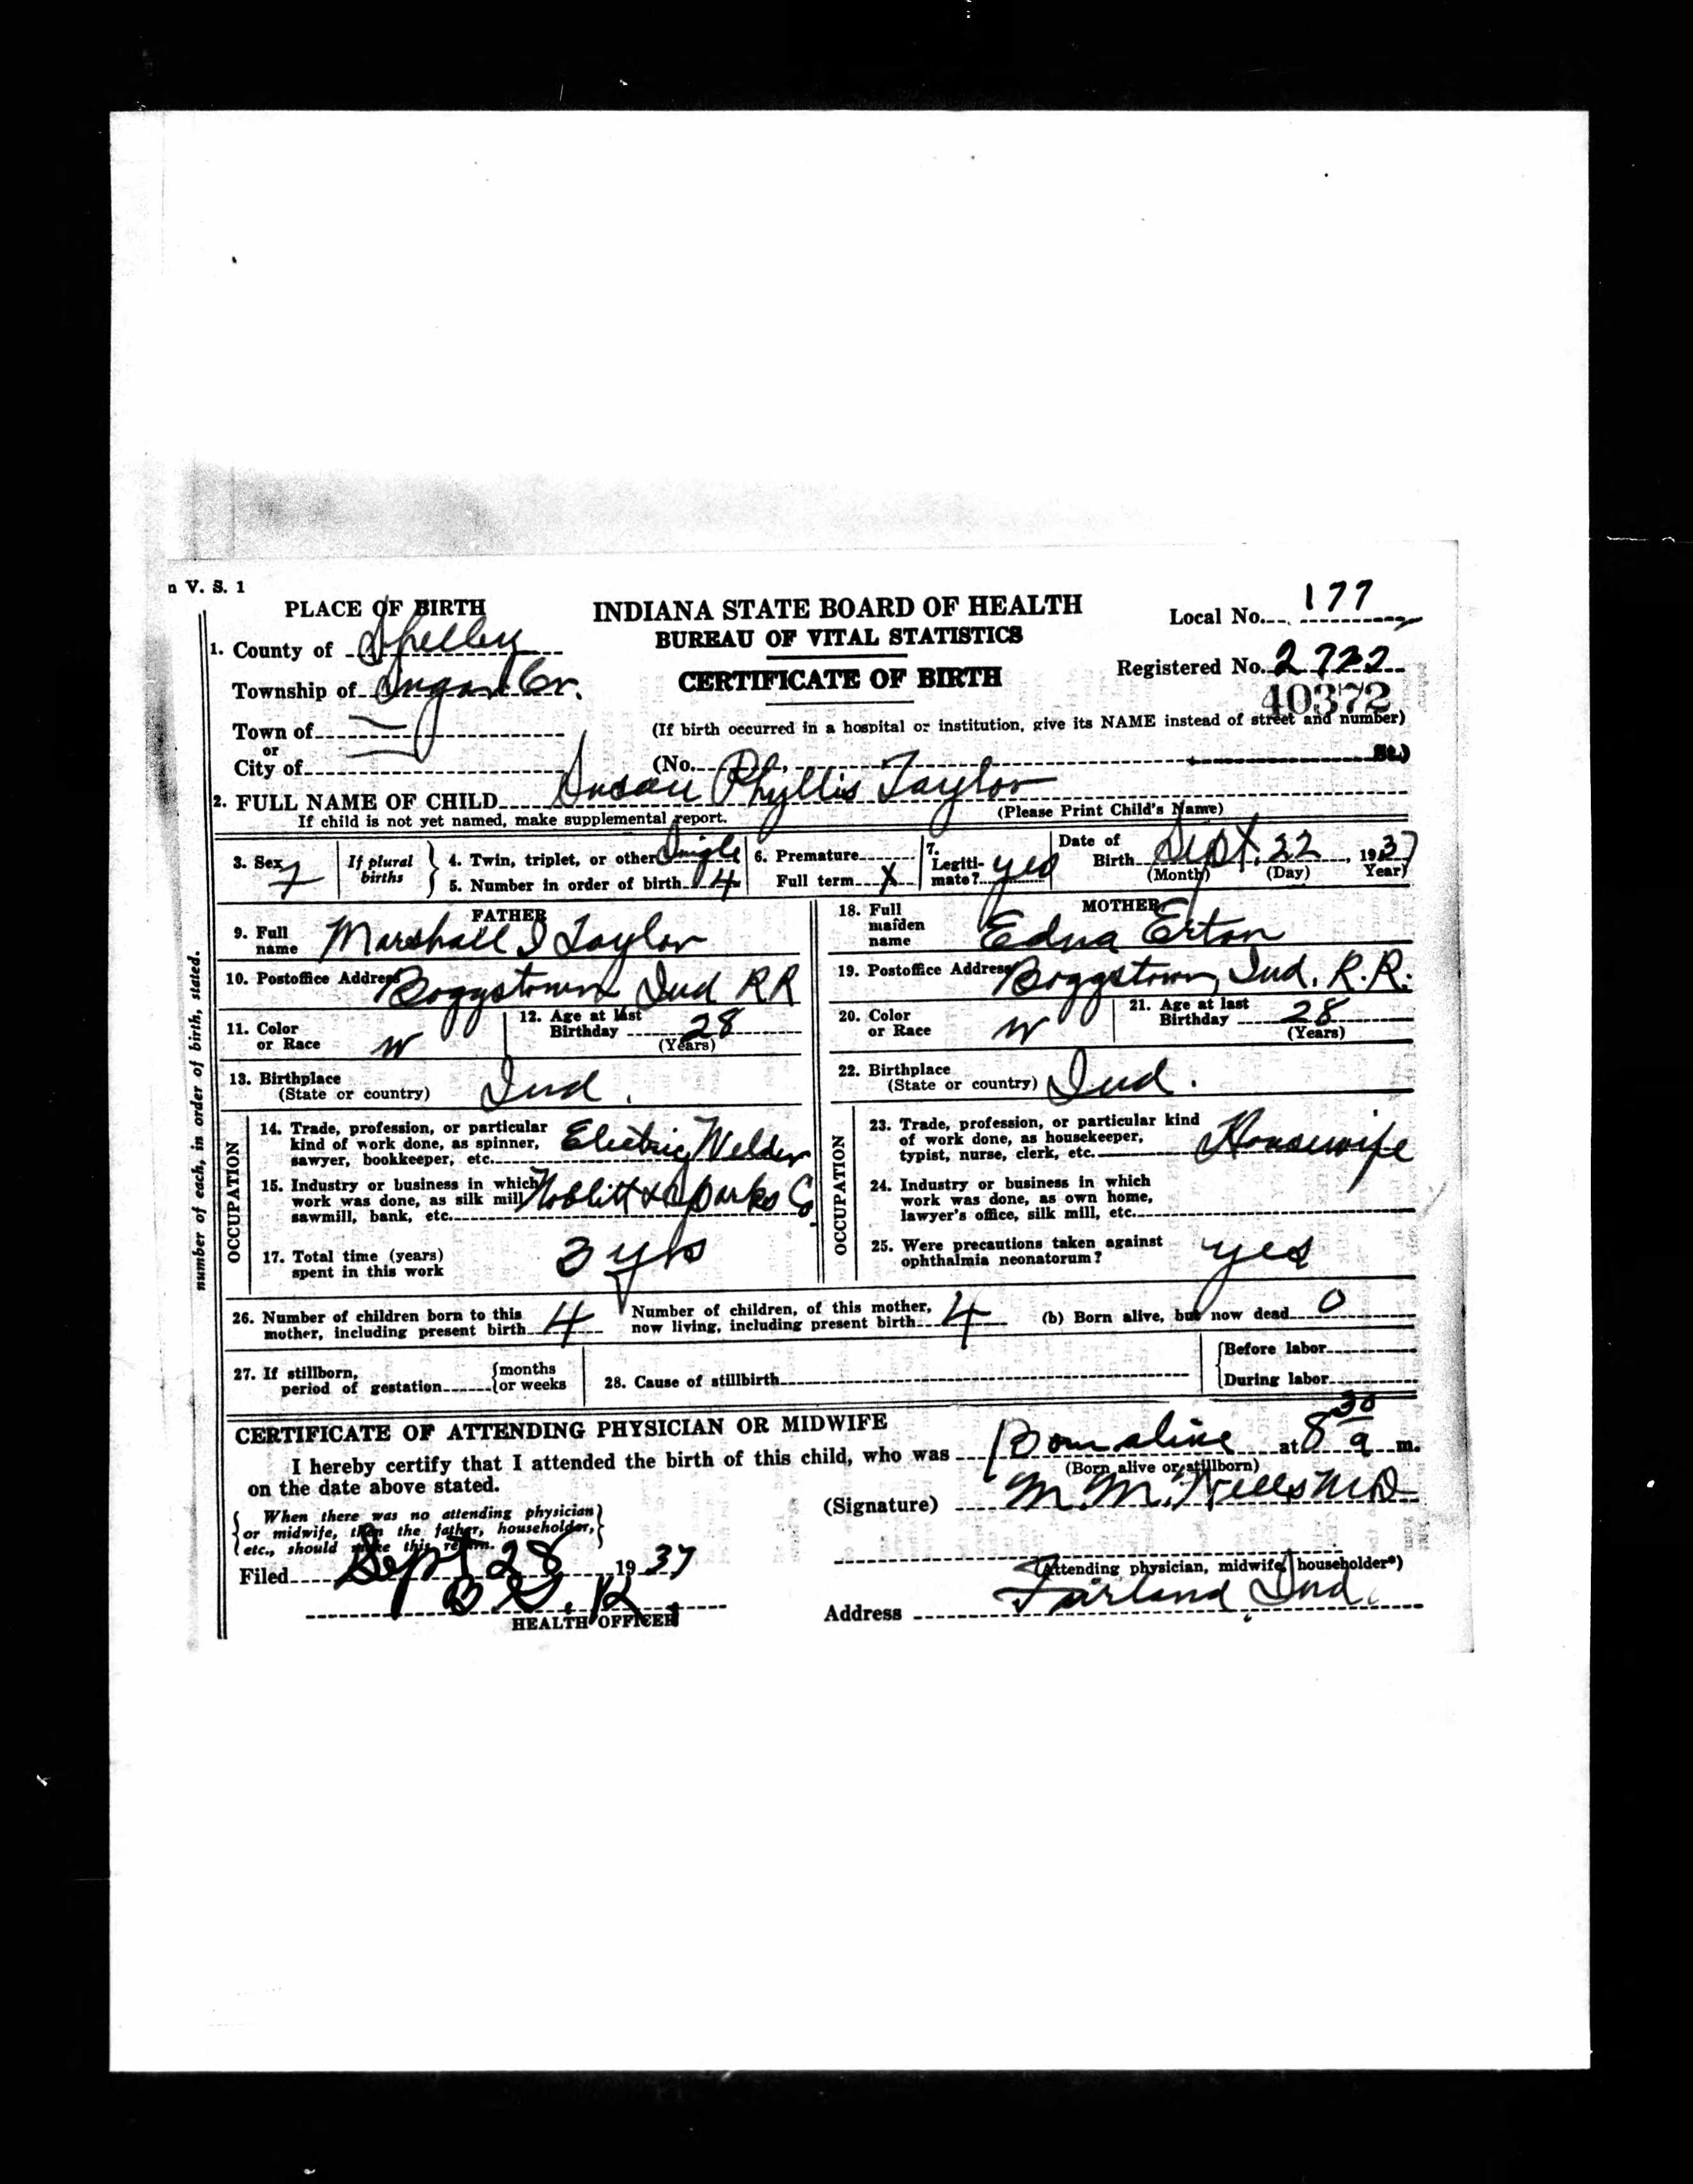 n V. S. 1
PLACE OF BIRTH
INDIANA STATE BOARD OF HEALTH
Local No. 177
1. County of Shelby
BUREAU OF VITAL STATISTICS
Registered No. 2722
Township of Sugar Cr.
CERTIFICATE OF BIRTH
40372
Town of
(If birth occurred in a hospital or institution, give its NAME instead of street and number)
or
City of
(No. , St.)
2. FULL NAME OF CHILD Susan Phyllis Taylor
(Please Print Child's Name)
If child is not yet named, make supplemental report.
3. Sex F
If plural births
4. Twin, triplet, or other Single
5. Number in order of birth 4
6. Premature
Full term X
7. Legitimate? yes
Date of Birth Sept. 22, 1937
(Month) (Day) Year)
FATHER
9. Full name Marshall I Taylor
10. Postoffice Address Boggstown Ind RR
11. Color or Race W
12. Age at last Birthday 28
(Years)
13. Birthplace
(State or country) Ind.
OCCUPATION
14. Trade, profession, or particular
kind of work done, as spinner,
sawyer, bookkeeper, etc. Electric Welder
15. Industry or business in which
work was done, as silk mill
sawmill, bank, etc. Noblitt & Sparks Co.
17. Total time (years)
spent in this work 3 yrs
MOTHER
18. Full maiden name Edna
19. Postoffice Address Boggstown, Ind. R.R.
20. Color or Race W
21. Age at last Birthday 28
(Years)
22. Birthplace
(State or country) Ind.
OCCUPATION
23. Trade, profession, or particular kind
of work done, as housekeeper,
typist, nurse, clerk, etc. Housewife
24. Industry or business in which
work was done, as own home,
lawyer's office, silk mill, etc.
25. Were precautions taken against
ophthalmia neonatorum? yes
26. Number of children born to this
mother, including present birth 4
Number of children, of this mother,
now living, including present birth 4
(b) Born alive, but now dead 0
27. If stillborn,
period of gestation {months
{or weeks
28. Cause of stillbirth
{Before labor
{During labor
CERTIFICATE OF ATTENDING PHYSICIAN OR MIDWIFE
I hereby certify that I attended the birth of this child, who was Born alive at 8 30 a m.
(Born alive or stillborn)
on the date above stated.
{When there was no attending physician}
{or midwife, then the father, householder,}
{etc., should make this return.
(Signature) M. M. Wells MD
(Attending physician, midwife, householder*)
Filed Sept 28 1937
HEALTH OFFICER
Address Fairland, Ind.
number of each, in order of birth, stated.